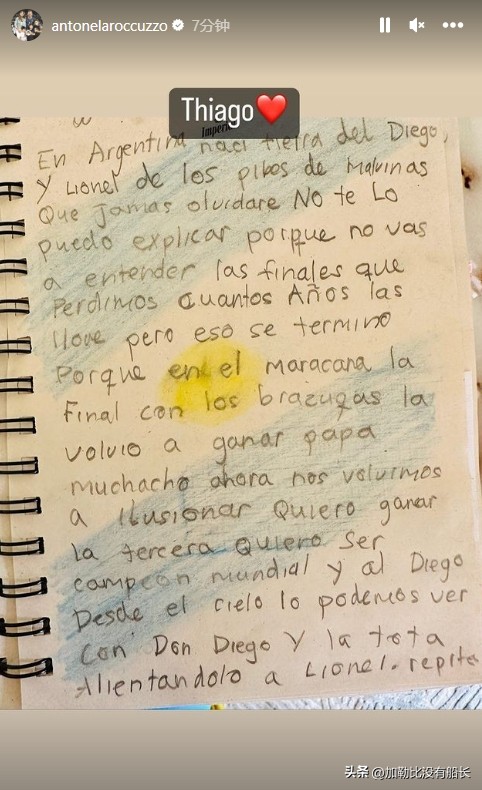 antonelaroccuzzo 7分钟
Thiago❤️
En Argentina naci tierra del Diego,
Y Lionel de los pibes de Malvinas
Que jamas olvidare NO te LO
puedo explicar porque no vas
a entender las finales que
Perdimos cuantos Años las
llore pero eso se termino
Porque en el maracana la
Final con los brazugas la
volvio a ganar papa
muchacho ahora nos volvimos
a Ilusionar Quiero ganar
la tercera Quiero Ser
campeon mundial y al Diego
Desde el cielo lo podemos ver
Con Don Diego Y la tota
Alientandolo a Lionel. repite
头条 @加勒比没有船长